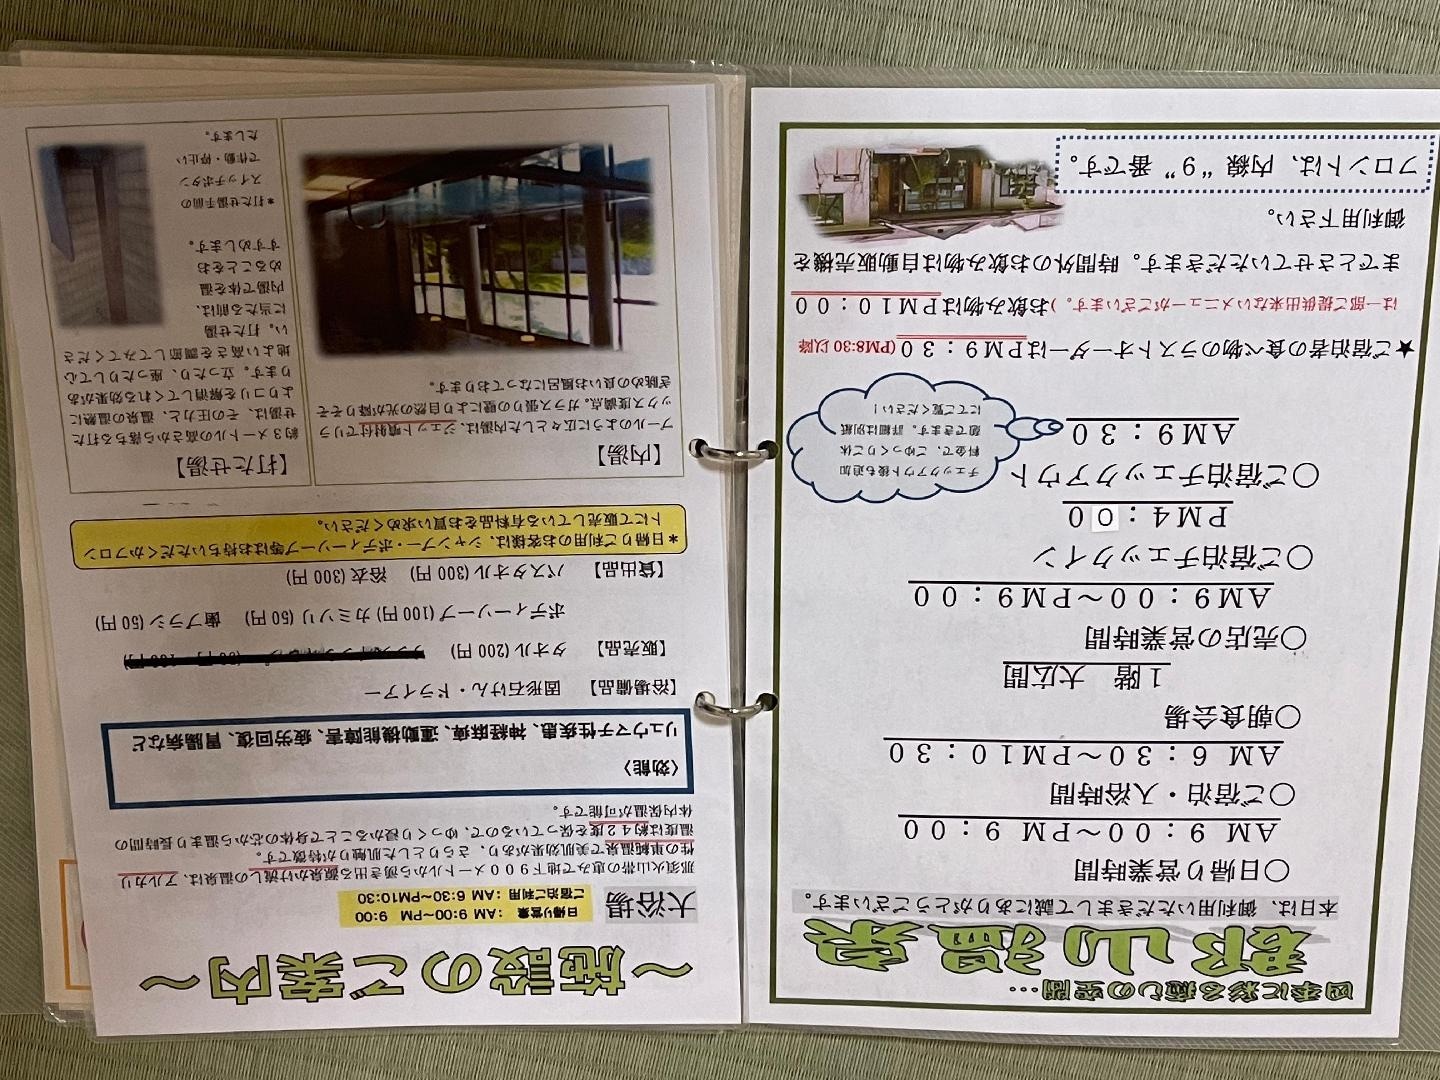 四季に彩る癒しの空間…
郡山温泉
本日は、御利用いただきまして誠にありがとうございます。
○日帰り営業時間
AM 9：00～PM 9：00
○ご宿泊・入浴時間
AM 6：30～PM10：30
○朝食会場
1階 大広間
○売店の営業時間
AM9：00～PM9：00
○ご宿泊チェックイン
PM4：00
○ご宿泊チェックアウト
AM9：30
チェックアウト後も追加
料金で、ごゆっくりご休
憩できます。詳細は別紙
にてご覧ください！
★ご宿泊者の食べ物のラストオーダーはPM9：30(PM8:30以降
は一部ご提供出来ないメニューがございます。)お飲み物はPM10：00
までとさせていただきます。時間外のお飲み物は自動販売機を
御利用下さい。
フロントは、内線“9”番です。
～施設のご案内～
大浴場
日帰り営業 ：AM 9:00~PM 9:00
ご宿泊ご利用：AM 6:30~PM10:30
那須火山帯の恵みで地下900メートルから湧き出る源泉かけ流しの温泉は、アルカリ
性の単純温泉で美肌効果があり、さらりとした肌触りが特徴です。
温度は約42度を保っているので、ゆっくり浸かることで身体の芯から温まり長時間の
体内保温が可能です。
〈効能〉
リュウマチ性疾患、神経麻痺、運動機能障害、疲労回復、胃腸病など
【浴場備品】 固形石けん・ドライアー
【販売品】 タオル(200円)
ボディーソープ(100円) カミソリ(50円) 歯ブラシ(50円)
【貸出品】 バスタオル(300円) 浴衣(300円)
＊日帰りご利用のお客様は、シャンプー・ボディーソープ等はお持ちいただくかフロン
トにて販売している有料品をお買い求めください。
【内湯】
プールのように広々とした内湯は、ジェット噴射付でリラ
ックス度満点。ガラス張りの壁により自然の光が降りそそ
ぎ眺めの良いお風呂になっております。
【打たせ湯】
約3メートルの高さから落ちる打た
せ湯は、その圧力と、温泉の温熱に
よりコリを解消してくれる効果があ
ります。立ったり、座ったりして心
地よい高さを調節してみてくださ
い。打たせ湯
に当たる前は、
内湯で体を温
めることをお
すすめします。
＊打たせ湯手前の
スイッチボタン
で作動・停止い
たします。